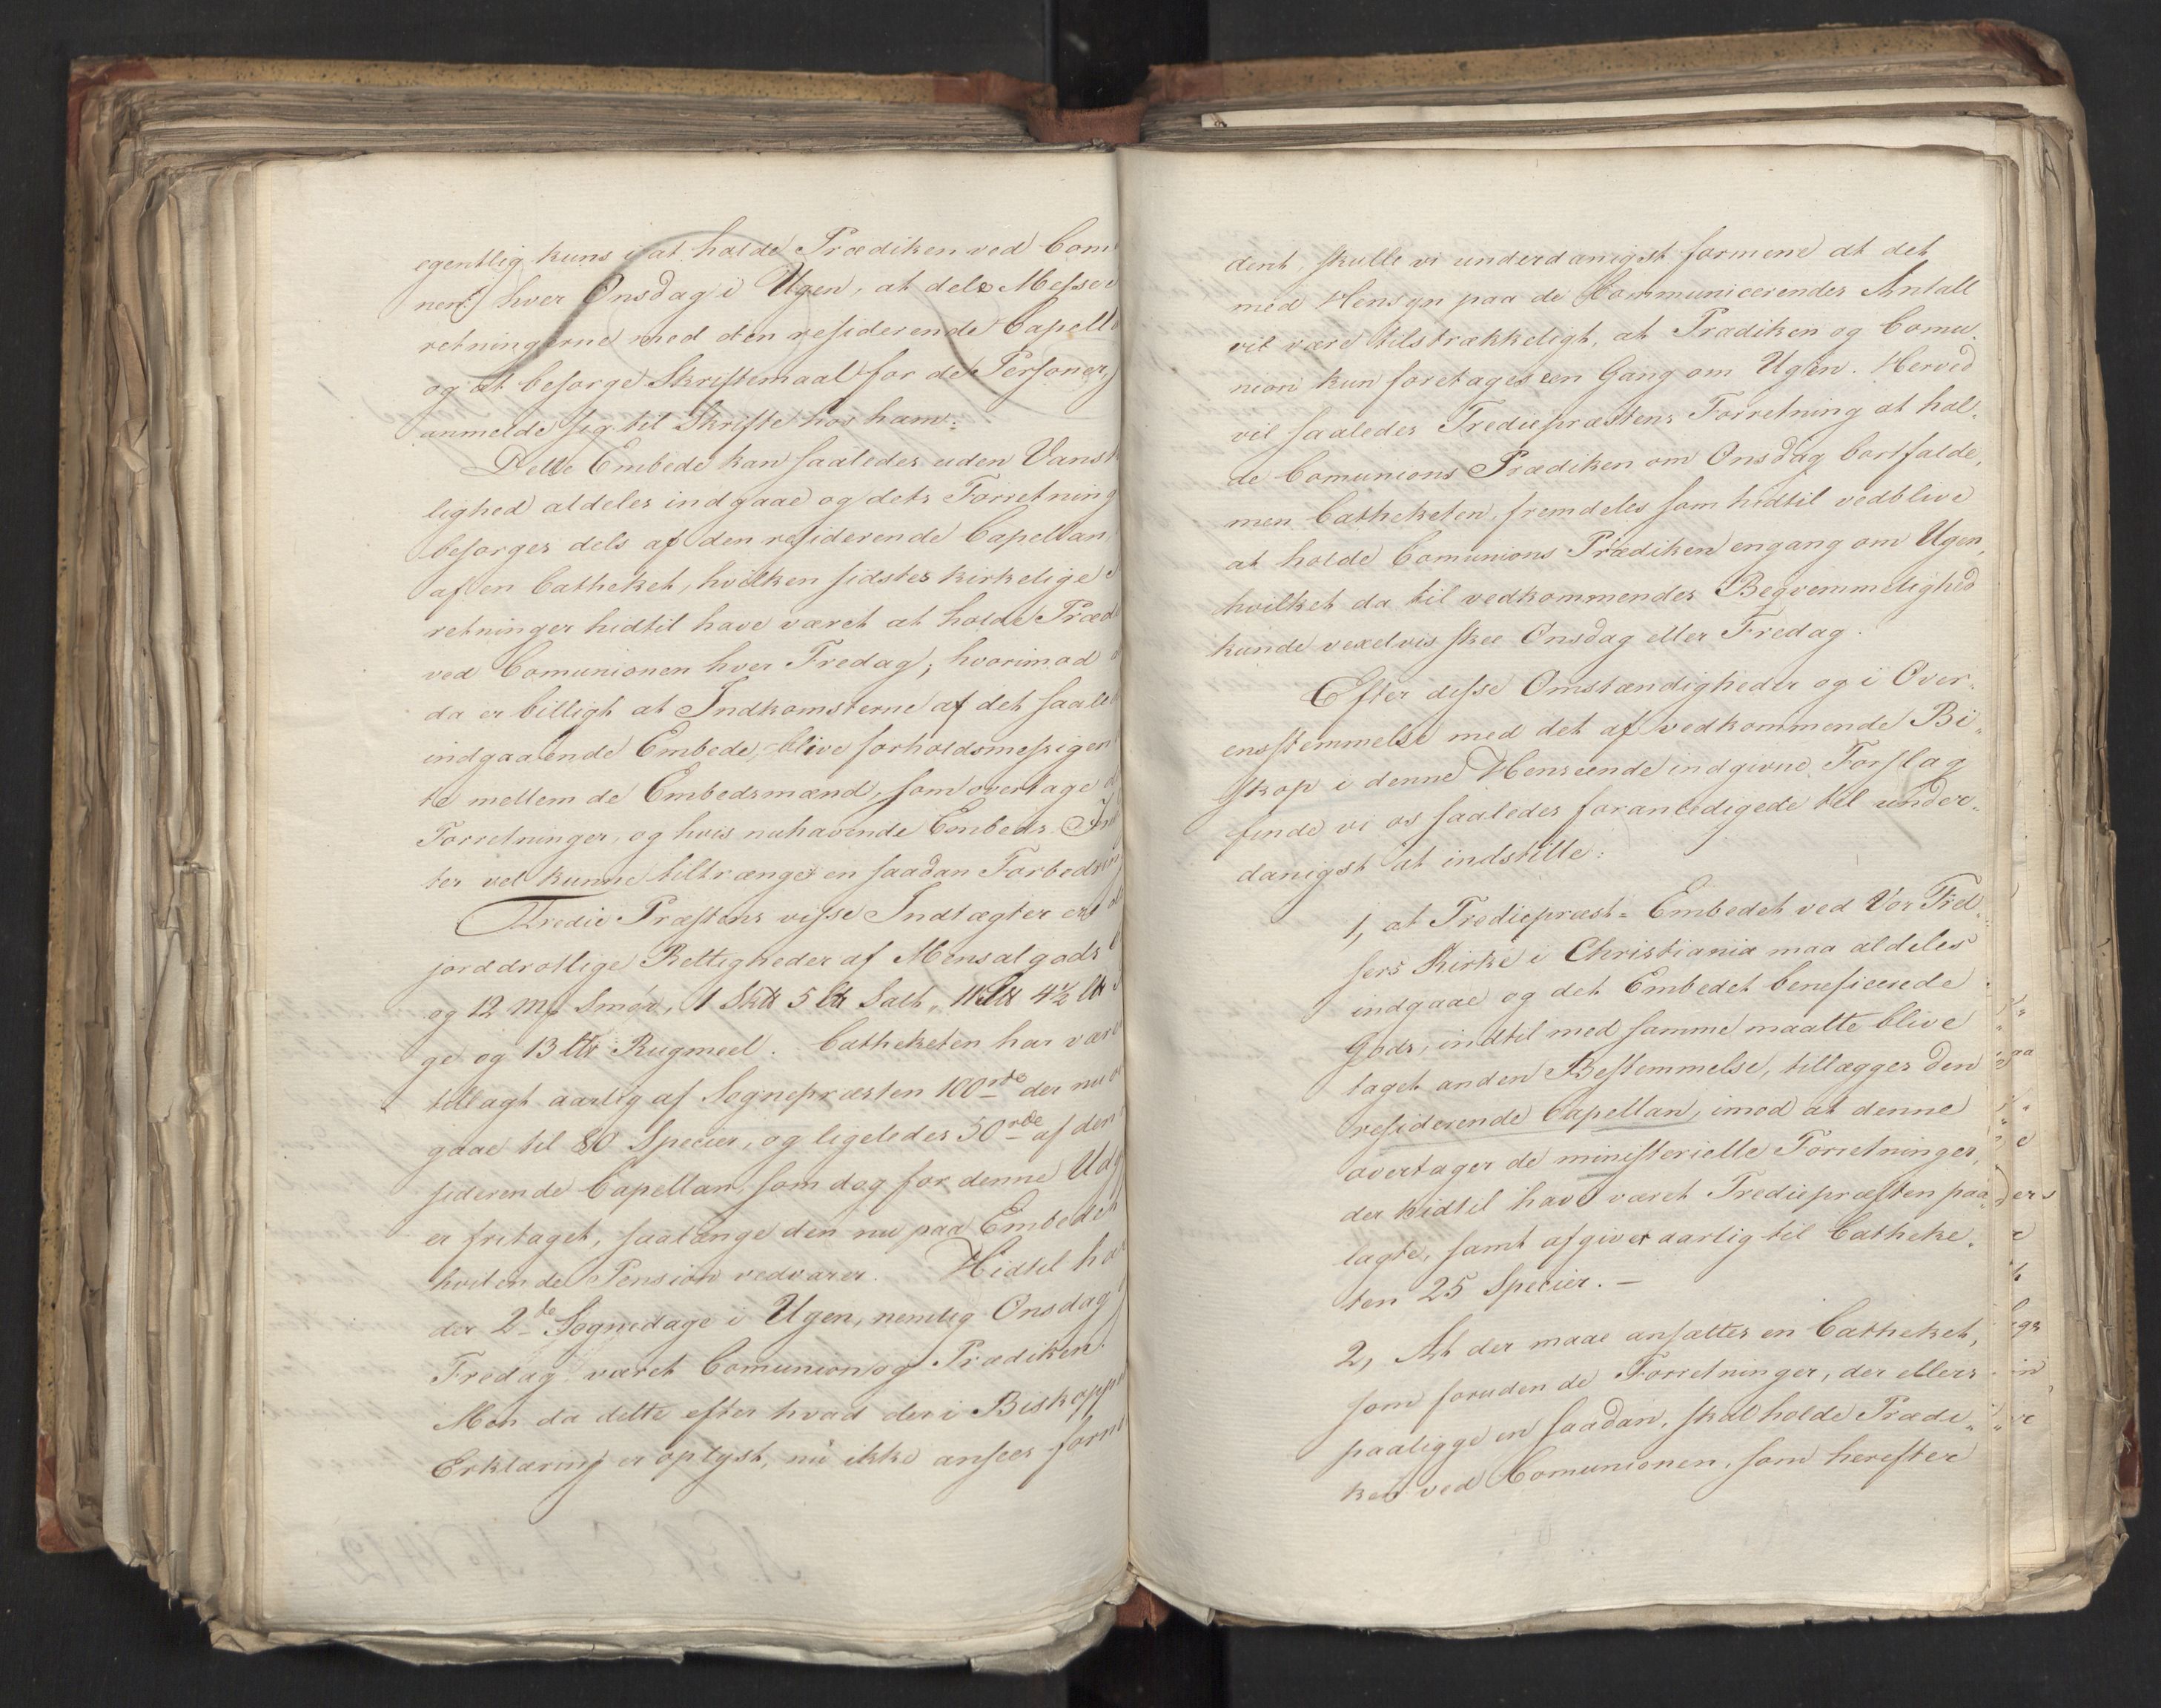 egentlig kuns i at holde Prædiken ved Com
nen hver Onsdag i Ugen, at dele Messe
retningerne med den residerende Capell
og at besørge Skriftemaal for de Personer,
anmelde sig til Skrifte hos ham.
Dette Embede kan saaledes uden Vansk
lighed aldeles indgaae og dets Forretning
besørges dels af den residerende Capellan,
af en Catheket, hvilken sidstes kirkelige
retninger hidtil have været at holde Præd
ved Comunionen hver Fredag; hvorimod
da er billigt at Indkomsterne af det saale
indgaaende Embede, blive forholdsmessigen
te mellem de Embedsmænd, som overtage
Forretninger, og hvis nuhavende Embeds In
ter vel kunne tiltrænge en saadan Forbedrin
Tredie Præstens visse Indtægter ere
jorddrotlige Rettigheder af Mensalgods
og 12 Mk Smør, 1 Sktt 5 ltt Salt, 11 Sktt 4½ ltt
ge og 13 ltt Rugmeel. Catheketen har være
tillagt aarlig af Sognepræsten 100 rde der nu
gaae til 80 Specier, og ligeledes 50 rde af den
siderende Capellan, som dog for denne Udg
er fritaget, saalænge den nu paa Embedet
hvilende Pension vedvarer. Hidtil har
der 2de Søgnedage i Ugen, nemlig Onsdag
Fredag været Comunion og Prædiken.
Men da dette efter hvad der i Biskopp
Erklæring er oplyst, nu ikke ansees forn
dent, skulle vi underdanigst formene at det
med Hensyn paa de Communicerendes Antall
vil være tilstrækkeligt, at Prædiken og Comu
nion kun foretages een Gang om Ugen. Herved
vil saaledes Trediepræstens Forretning at hol-
de Comunions Prædiken om Onsdag bortfalde,
men Catheketen, fremdeles som hidtil vedblive
at holde Comunions Prædiken engang om Ugen,
hvilket da til vedkommendes Beqvemmelighed
kunde vexelvis skee Onsdag eller Fredag.
Efter disse Omstændigheder og i Over-
ensstemmelse med det af vedkommende Bi-
skop i denne Henseende indgivne Forslag
finde vi os saaledes foranledigede til under-
danigst at indstille:
1, at Trediepræst-Embedet ved Vor Frel-
sers Kirke i Christiania maa aldeles
indgaae og det Embedet beneficerede
Gods, indtil med samme maatte blive
taget anden Bestemmelse, tillægges den
residerende Capellan, imod at denne
overtager de ministerielle Forretninger,
der hidtil have været Trediepræsten paa-
lagte, samt afgiver aarlig til Catheke-
ten 25 Specier. —
2, At der maae ansættes en Catheket,
som foruden de Forretninger, der ellers
paaligge en saadan, skal holde Prædi-
ken ved Comunionen, som herefter